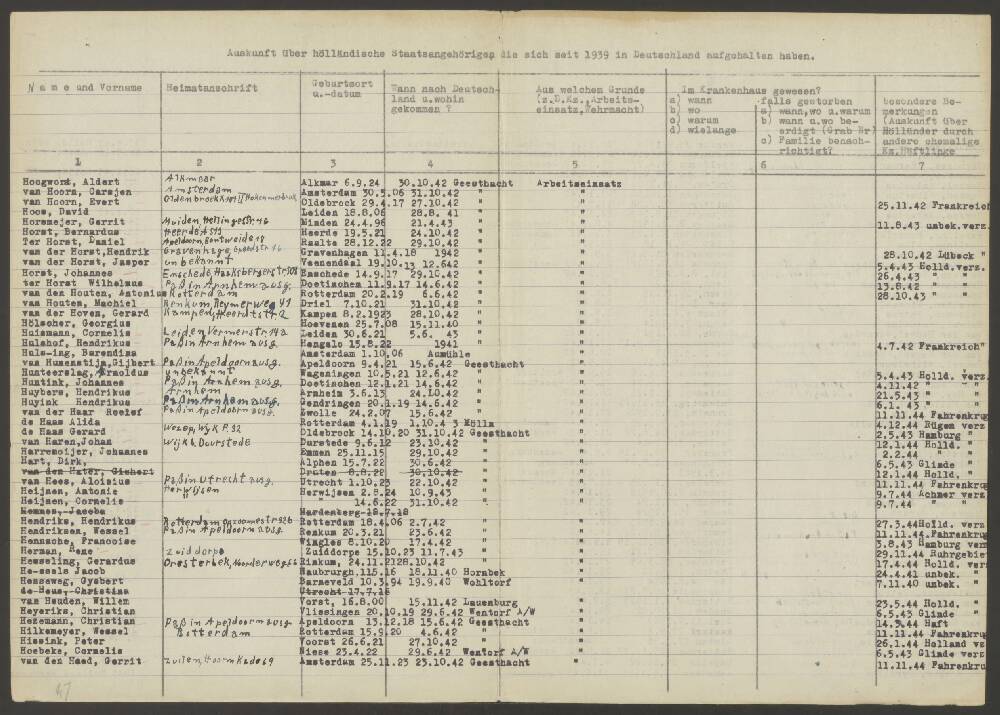 Auskunft über holländische Staatsangehörigen die sich seit 1939 in Deutschland aufgehalten haben.
Name und Vorname Heimatanschrift Geburtsort u.-datum Wann nach Deutschland u.wohin gekommen ? Aus welchem Grunde (z.B.Kz.,Arbeitseinsatz,Wehrmacht) Im Krankenhaus gewesen? a) wann b) wo c) warum d) wielange falls gestorben a) wann,wo u.warum b) wann u.wo beerdigt (Grab Nr) c) Familie benachrichtigt? besondere Bemerkungen (Auskunft über Holländer durch andere ehemalige Kz.Häftlinge
1 2 3 4 5 6 7
Hoogworst, Aldert Alkmaar Alkmar 6.9.24 30.10.42 Geesthacht Arbeitseinsatz
van Hoorn, Carsjen Amsterdam Amsterdam 30.5.06 31.10.42 " "
van Hoorn, Evert Oldebroek 29.4.17 27.10.42 " " 25.11.42 Frankreich
Hoos, David Leiden 18.8.06 28.8. 41 " "
Horsmejer, Gerrit Muiden, Minden 24.4.96 21.4.43 " " 11.8.43 unbek.verz.
Horst, Bernardus Heerde A 513 Heerde 19.5.21 24.10.42 " "
Ter Horst, Daniel Apeldoorn, Raalte 28.12.22 24.10.42 " "
van der Horst,Hendrik Gravenhage, Gravenhagen 11.4.18 1942 " " 28.10.42 Lübeck "
van der Horst, Jasper unbekannt Veenendaal 19.10.13 12.6.42 " " 5.4.43 Holld.verz.
Horst, Johannes Enschede, Enschede 14.9.17 29.10.42 " " 26.4.43 " "
ter Horst Wilhelmus Paß in Arnhem ausg. Doetinchem 11.9.17 14.6.42 " " 13.8.42 " "
van den Houten, Antonius Rotterdam Rotterdam 20.2.19 6.6.42 " " 28.10.43 " "
van Houten, Machiel Renkum, Driel 7.10.21 31.10.42 " "
van der Hoven, Gerard Kampen, Kampen 8.2.1923 28.10.42 " "
Hölscher, Georgius Hoevenen 25.7.08 15.11.40 " "
Huismann, Cornelis Leiden Vermeerstr 142 Leiden 30.6.21 5.6. 43 " "
Hulshof, Hendrikus Paß in Arnhem ausg. Hengelo 15.8.22 1941 " " 4.7.42 Frankreich"
Huls-ing, Barendina Amsterdam 1.10.06 Aumühle "
van Gijbert Paß in Apeldoorn ausg. Apeldoorn 9.4.21 15.6.42 Geesthacht "
Hunteerslag, Arnoldus unbekannt Wageningen 10.5.21 12.6.42 " " 5.4.43 Holld. verz.
Huntink, Johannes Paß in Arnhem ausg. Doetinchem 12.1.21 14.6.42 " " 4.11.42 " "
Huybers, Hendrikus Arnhem Arnheim 3.6.13 24.10.42 " " 21.5.43 " "
Huyink Hendrikus Paß in Arnhem ausg. Gendringen 20.1.19 14.6.42 " " 6.1. 43 " "
van der Haar Reelof Paß in Apeldoorn ausg. Zwolle 24.2.07 15.6.42 " " 11.11.44 Fahrenkrug
de Haas Alida Rotterdam 4.1.19 1.10.4 3 Mölln " 4.12.44 Rügen verz
de Haas Gerard Wezep, Wyk P. 92 Oldebrock 14.10.20 31.10.42 Geesthacht " 2.5.43 Hamburg "
van Haren,Johan Wijk b Duurstede Durstede 9.6.12 23.10.42 " " 12.1.44 Holld. "
Harremeijer, Johannes Emmen 25.11.15 29.10.42 " " 2.2.44 " "
Hart, Dirk, Alphen 15.7.22 30.6.42 " " 6.5.43 Glinde "
van den Hater, Gichert Druten 8.8.22 30.10.42 12.1.44 Holld. "
van Hees, Aloisius Paß in Utrecht ausg. Utrecht 1.10.23 22.10.42 " " 11.11.44 Fahrenkrug
Heijnen, Antonie Herwijnen Herwijsen 2.8.24 10.9.43 " " 9.7.44 Achmer verz
Heijnen, Cornelis 14.6.22 31.10.42 " " 9.7.44 " "
Hemmes, Jacoba Hardenberg 18.7.18
Hendriks, Hendrikus Rotterdam Rotterdam 18.4.06 2.7.42 " " 27.3.44 Holld. verz
Hendriksen, Wessel Paß in Apeldoorn ausg. Renkum 20.3.21 23.6.42 " " 11.11.44 Fahrenkrug
Hennsche, Francoise Wingles 8.10.20 17.4.42 " " 3.8.43 Hamburg verz
Herman, Rene Zuiddorpe Zuiddorpe 15.10.23 11.7.43 " " 29.11.44 Ruhrgebiet
Hesseling, Gerardus Oosterbek, Rinkum, 24.11.21 28.10.42 " " 17.4.44 Holld. verz
He-ssels Jacob 18.11.40 Hornbek " 24.4.41 unbek. "
Hesseweg, Gysbert Barneveld 10.3.94 19.9.40 Wohltorf " 7.11.40 unbek. "
de Heus, Christina Utrecht 17.7.16
van Heuden, Willem Vorst, 16.8.00 15.11.42 Lauenburg " 23.5.44 Holld. "
Heyeriks, Christian Vlissingen 20.10.19 29.6.42 Wentorf A/W " 6.5.43 Glinde "
Hezemann, Christian Paß in Apeldoorn ausg Apeldoorn 13.12.18 15.6.42 Geesthacht " 14.3.44 Haft
Hilkemeyer, Wessel Rotterdam Rotterdam 15.9.20 4.6.42 " " 11.11.44 Fahrenkrug
Hissink, Peter Voorst 26.6.21 27.10.42 " " 26.1.44 Holland vz
Hoebeke, Cornelis Niese 23.4.22 29.6.42 Wentorf A/W " 6.5.43 Glinde verz
van den Hoed, Gerrit Zuilen, Amsterdam 25.11.23 23.10.42 Geesthacht " 11.11.44 Fahrenkru
47